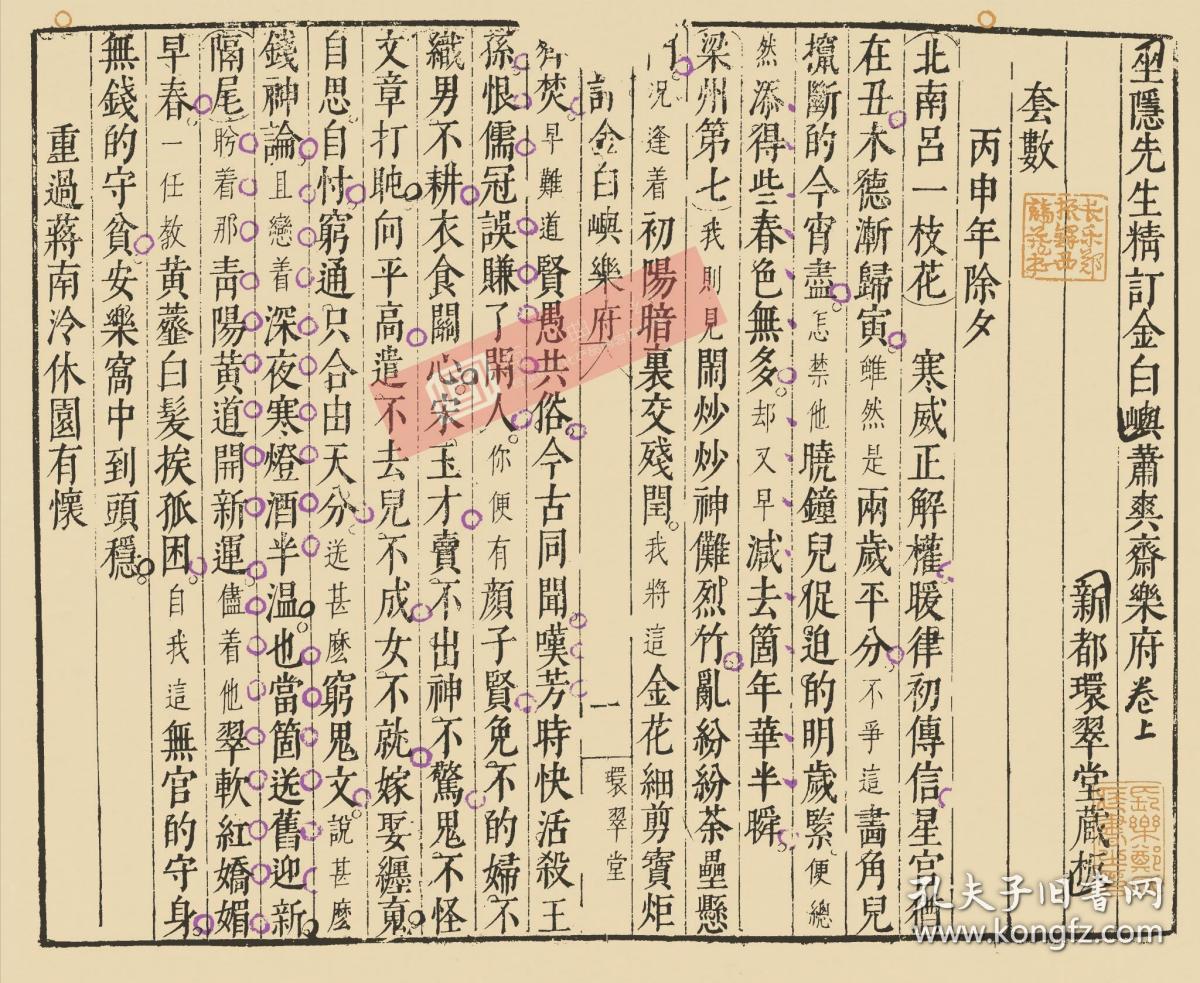 坐隱先生精訂金白嶼蕭爽齋樂府卷上
新都環翠堂藏板
套數
丙申年除夕
北南呂一枝花　寒威正解權暖律初傳信星宮猶
在丑木德漸歸寅雖然是兩歲平分不爭這畫角兒
攛斷的今宵盡怎禁他曉鐘兒促迫的明歲緊便總
然添得些春色無多却又早減去箇年華半瞬
梁州第七我則見閙炒炒神儺烈竹亂紛紛荼壘懸
況逢着初陽暗裏交殘閏我將這金花細剪寶炬
訂金白嶼樂府
一
環翠堂
焚早難道賢愚共俗今古同聞嘆芳時快活殺王
孫恨儒冠誤賺了閑人你便有顏子賢免不的婦不
織男不耕衣食關心宋玉才賣不出神不驚鬼不怪
文章打盹向平高遣不去兒不成女不就嫁娶纒
自思自忖窮通只合由天分送甚麽窮鬼文說甚麽
錢神論且戀着深夜寒燈酒半温也當箇送舊迎新
隔尾盻着那青陽黄道開新運儘着他翠軟紅嬌媚
早春一任教黄虀白髪挨孤困自我這無官的守身
無錢的守貧安樂窩中到頭穩
重過蔣南泠休園有懷
孔夫子旧书网
www.kongfz.com